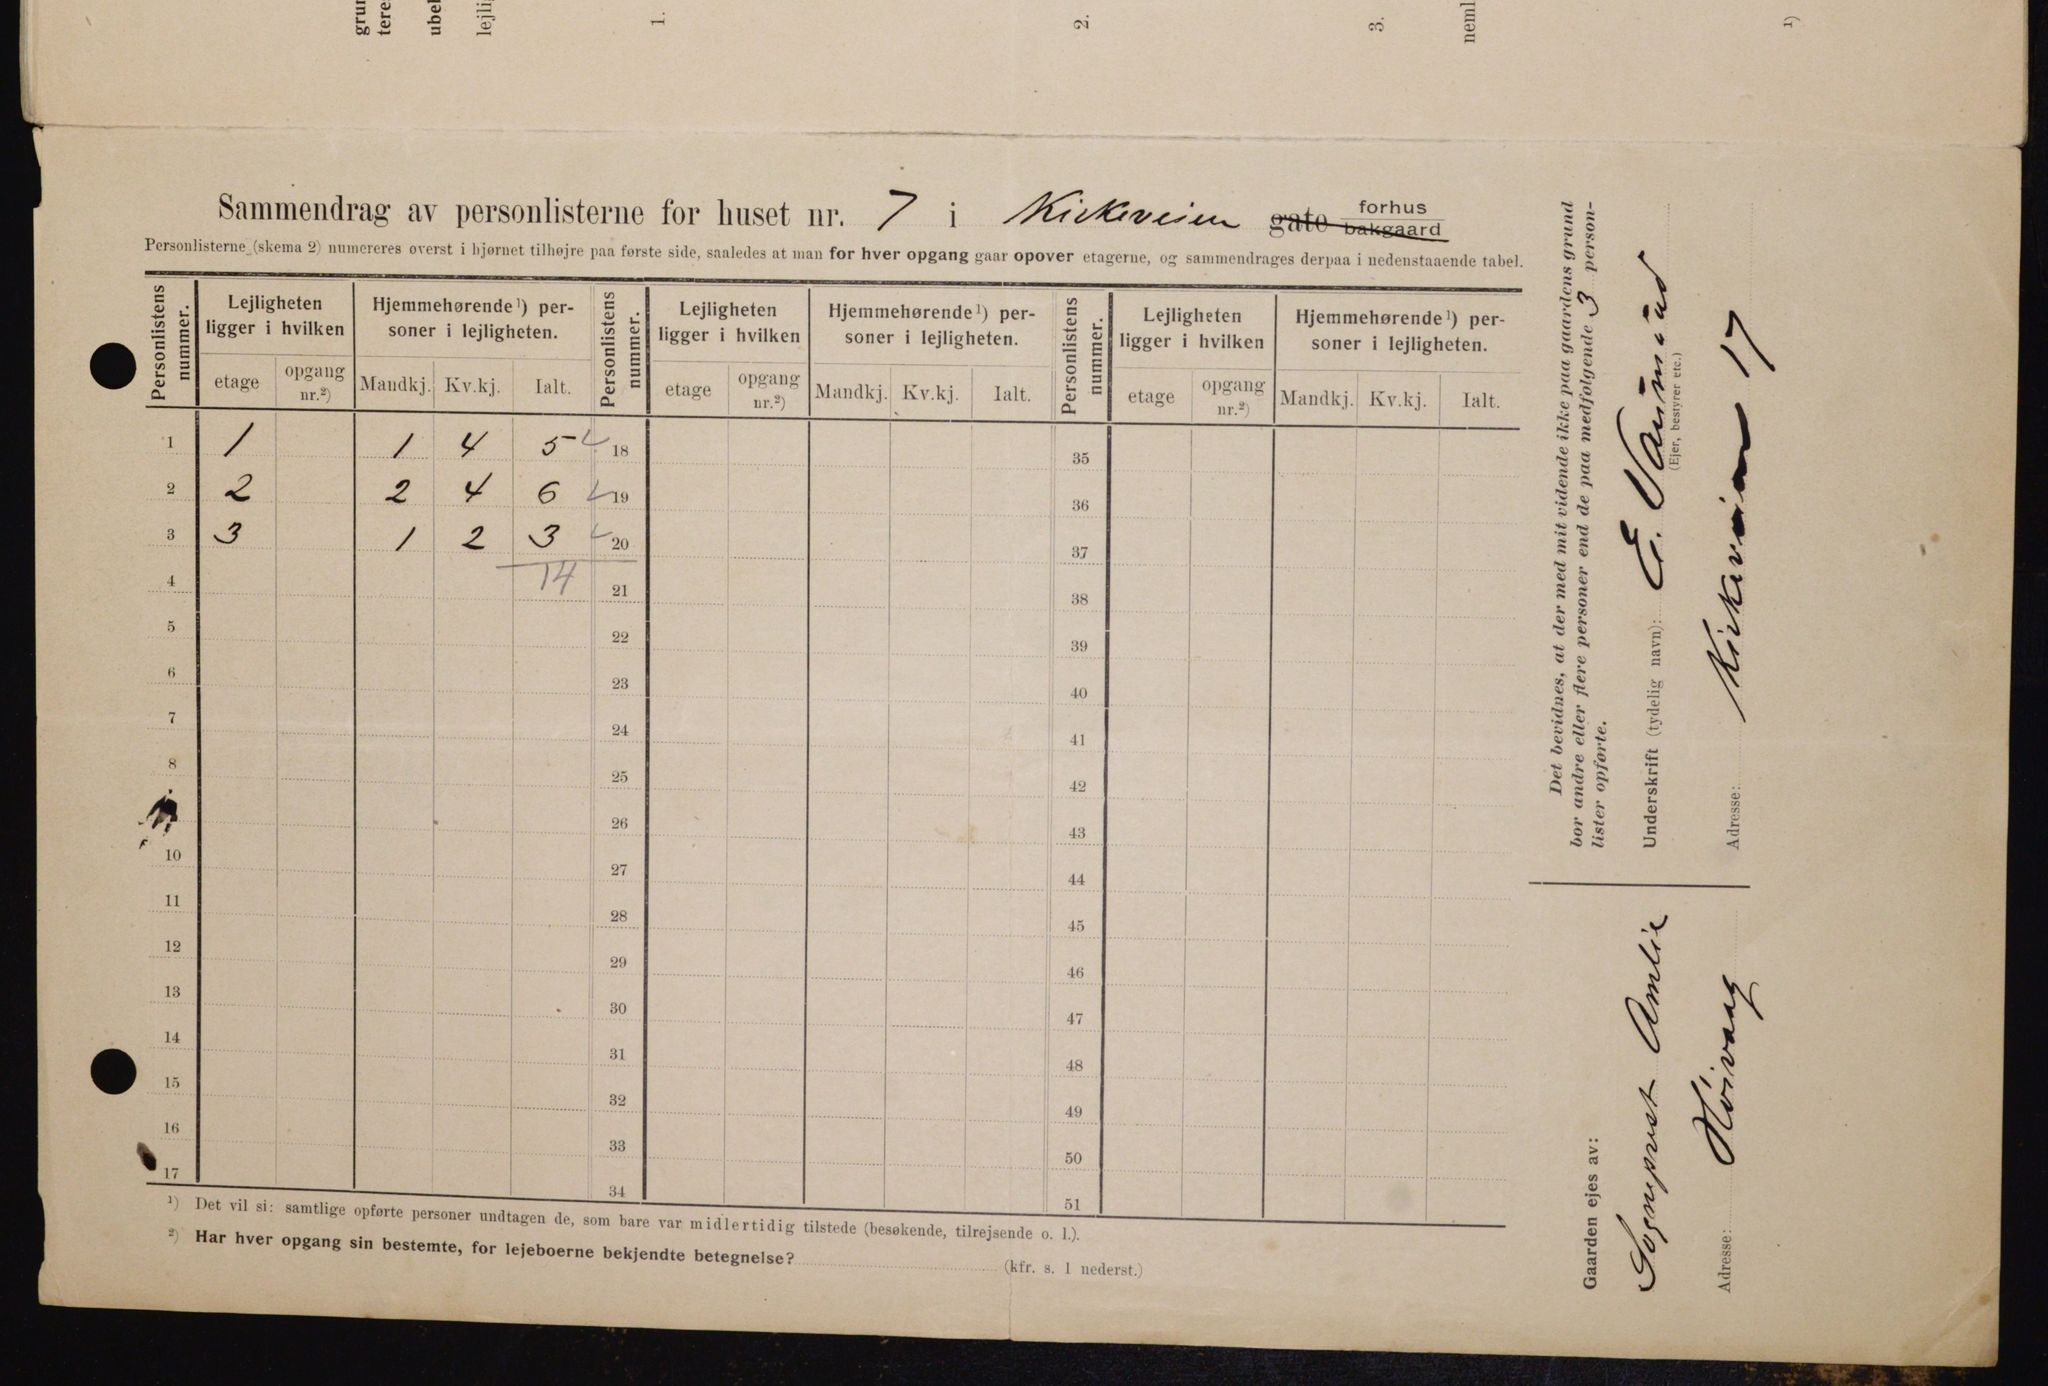 grun
tere
ubel
lejli
1.
2.
3.
neml
1)
Sammendrag av personlisterne for huset nr. 7 i Kirkeveien gate forhus bakgaard
Personlisterne (skema 2) numereres øverst i hjørnet tilhøjre paa første side, saaledes at man for hver opgang gaar opover etagerne, og sammendrages derpaa i nedenstaaende tabel.
Personlistens nummer. Lejligheten ligger i hvilken Hjemmehørende ¹) personer i lejligheten. Personlistens nummer. Lejligheten ligger i hvilken Hjemmehørende ¹) personer i lejligheten. Personlistens nummer. Lejligheten ligger i hvilken Hjemmehørende ¹) personer i lejligheten.
etage opgang nr.²) Mandkj. Kv.kj. Ialt. etage opgang nr.²) Mandkj. Kv.kj. Ialt. etage opgang nr.²) Mandkj. Kv.kj. Ialt.
1 1 1 4 5 18 35
2 2 2 4 6 19 36
3 3 1 2 3 20 37
4 14 21 38
5 22 39
6 23 40
7 24 41
8 25 42
26 43
10 27 44
11 28 45
12 29 46
13 30 47
14 31 48
15 32 49
16 33 50
17 34 51
¹) Det vil si: samtlige opførte personer undtagen de, som bare var midlertidig tilstede (besøkende, tilrejsende o. l.).
²) Har hver opgang sin bestemte, for lejeboerne bekjendte betegnelse? (kfr. s. 1 nederst.)
Det bevidnes, at der med mit vidende ikke paa gaardens grund
bor andre eller flere personer end de paa medfølgende 3 person-
lister opførte.
Underskrift (tydelig navn): E.
(Ejer, bestyrer etc.)
Adresse: Kirkeveien 17
Gaarden ejes av:
Sogneprest Amlie
Adresse: Høivaag